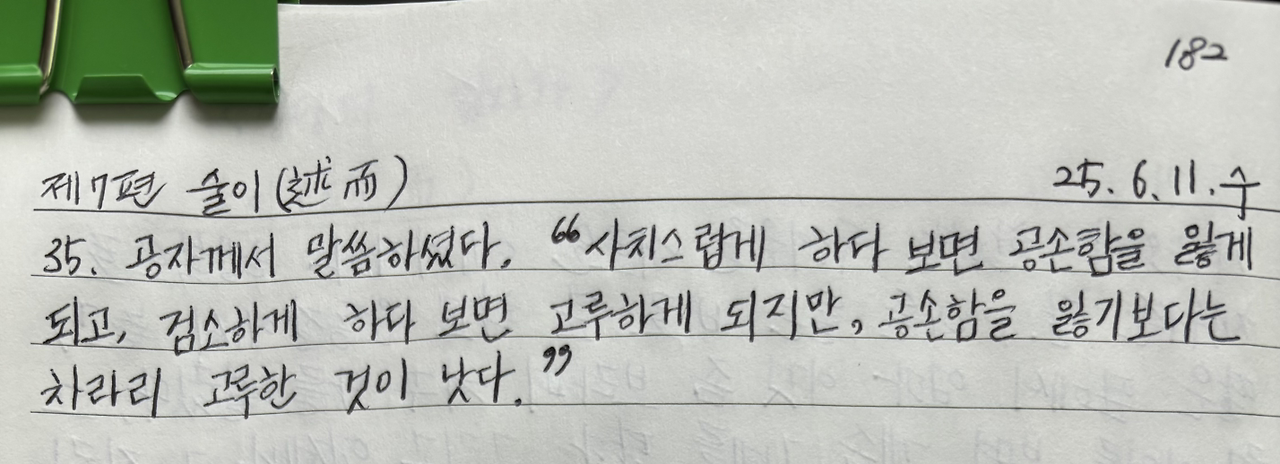 182
제7편 술이(述而) 25.6.11.수
35. 공자께서 말씀하셨다. “사치스럽게 하다 보면 공손함을 잃게
되고, 검소하게 하다 보면 고루하게 되지만, 공손함을 잃기보다는
차라리 고루한 것이 낫다.”